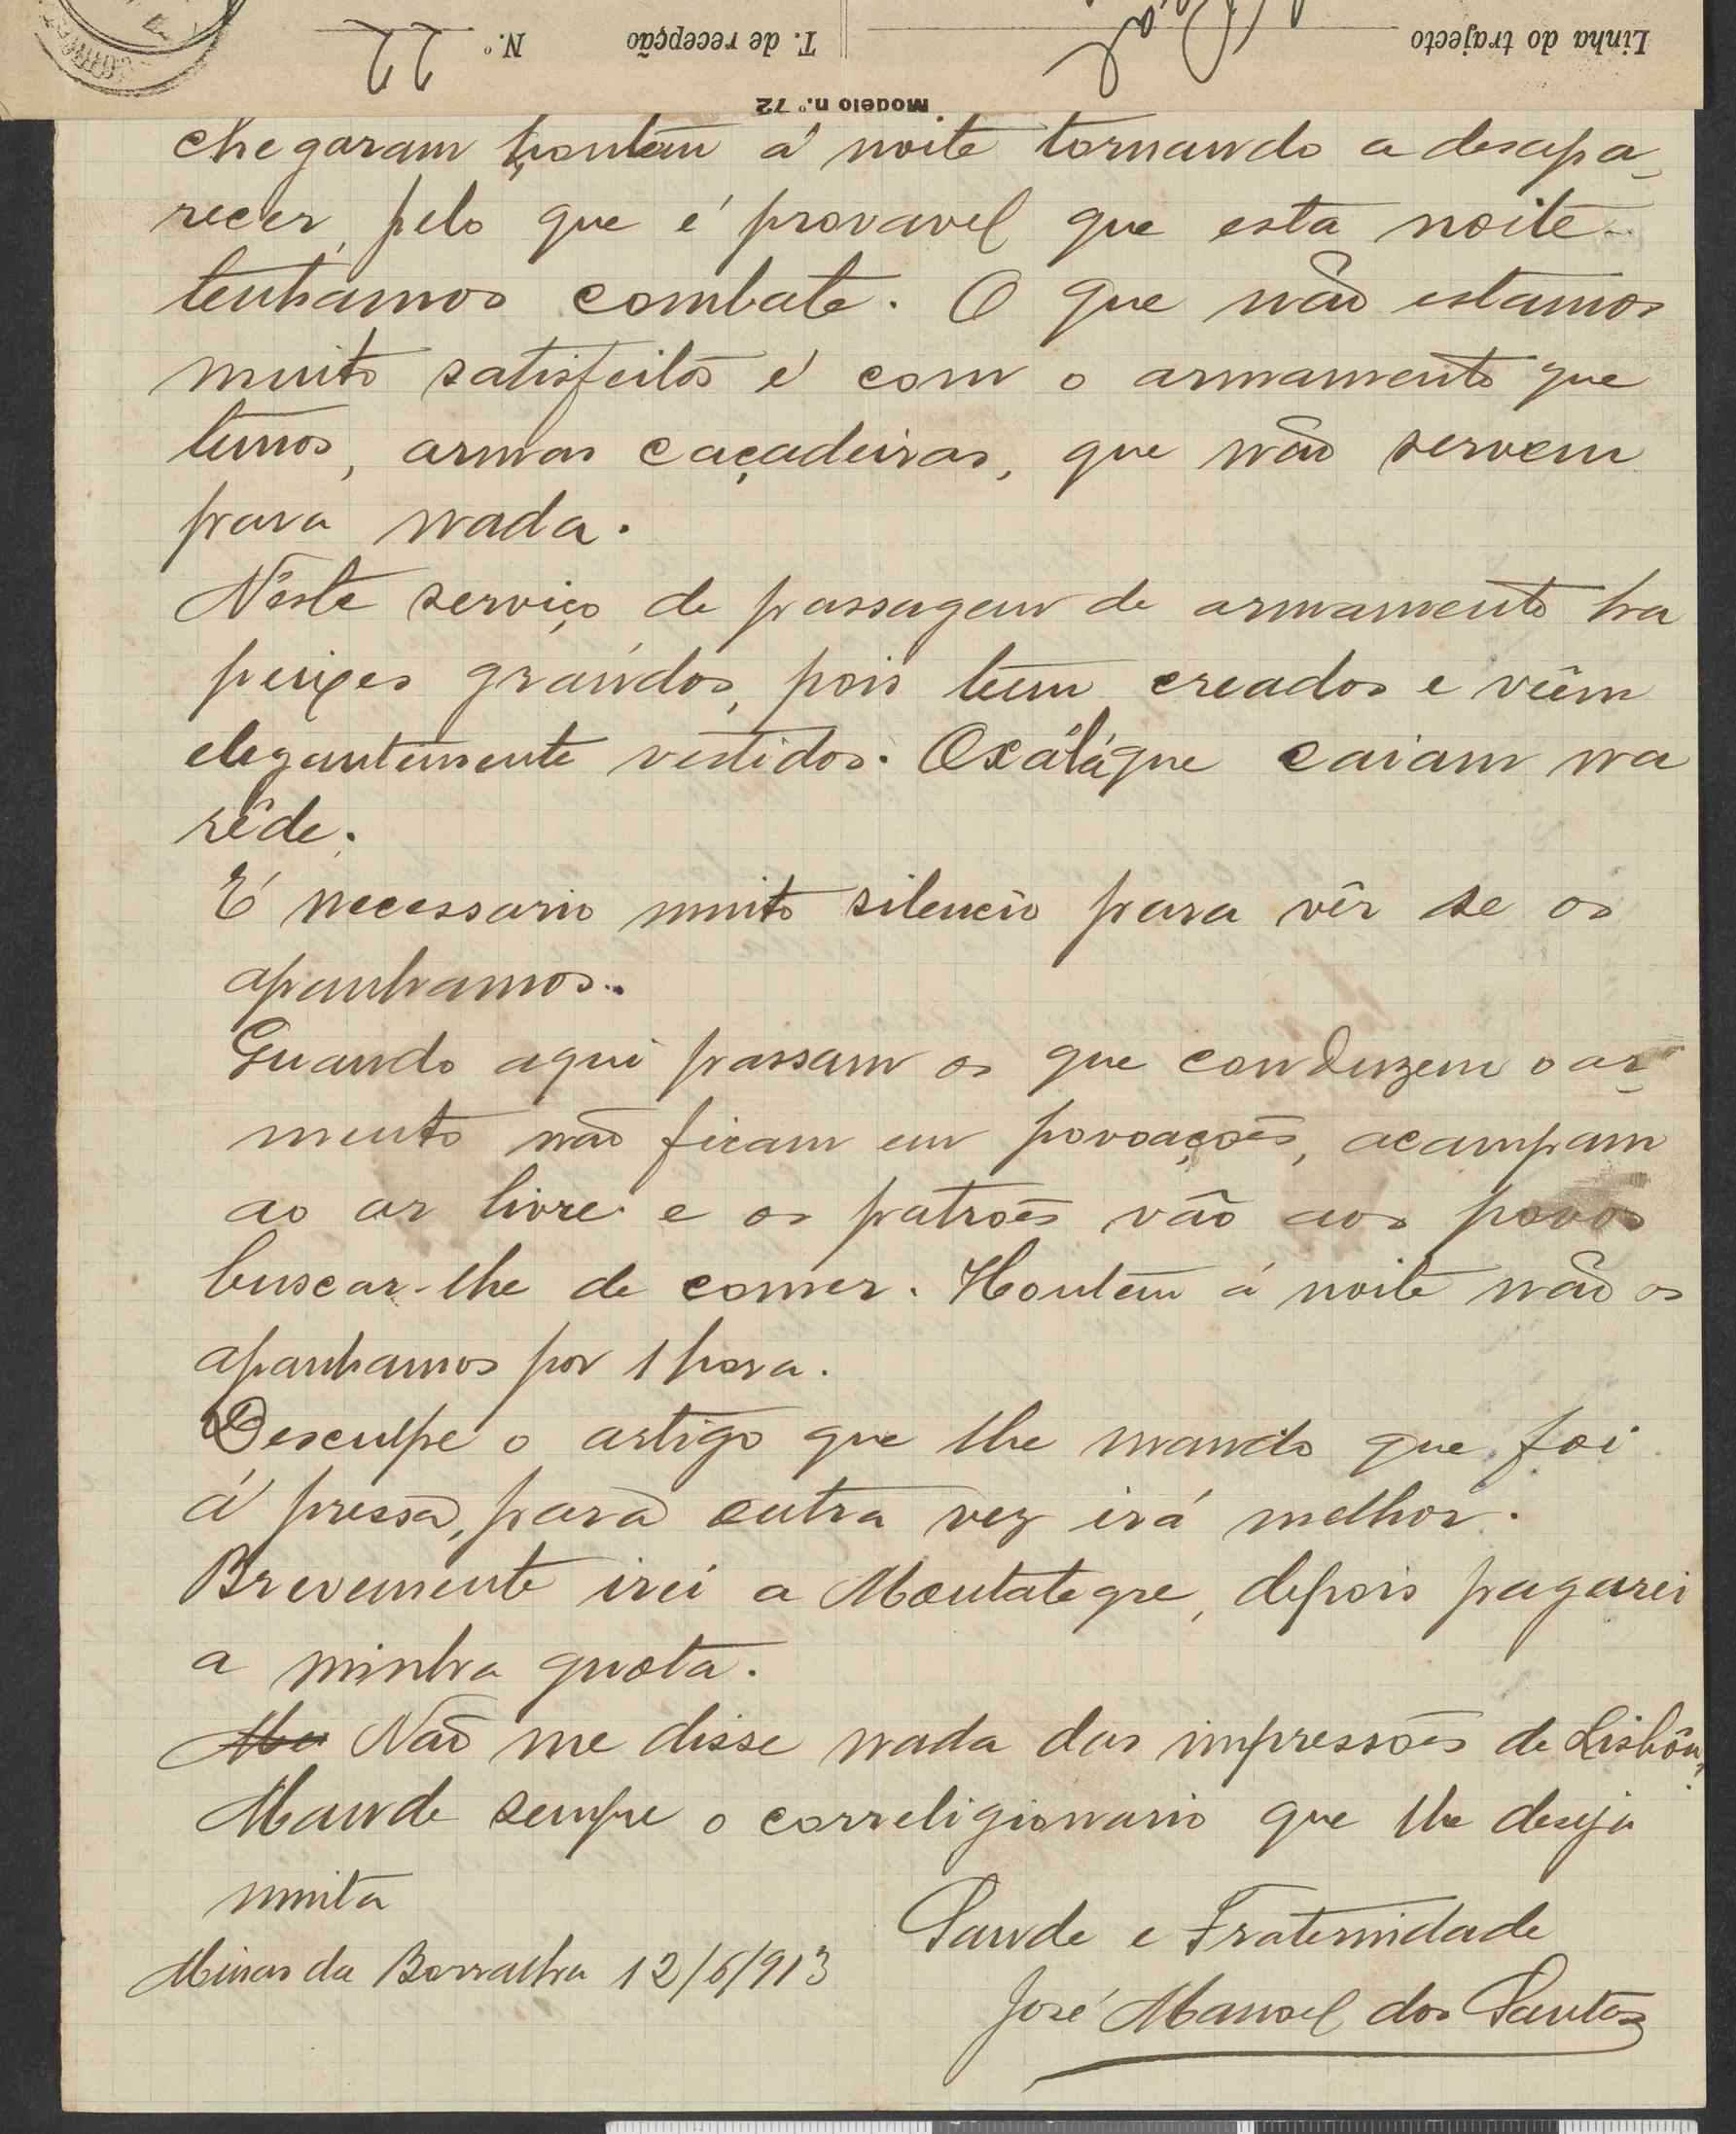 Linha do trajecto
T. de recepção
N.º 22
Modelo n.º 72
chegaram hontem á noite tornando a desapa-
recer, pelo que é provavel que esta noite
tenhamos combate. O que não estamos
muito satisfeitos é com o armamento que
temos, armas caçadeiras, que não servem
para nada.
Néste serviço de passagem de armamento ha
peixes graúdos, pois teem creados e vêm
elegantemente vestidos. Oxálá que caiam na
rêde.
É necessario muito silencio para vêr se os
apanhamos.
Quando aqui passam os que conduzem o ar-
mento não ficam em povoações, acampam
ao ar livre e os patrões vão aos povos
buscar-lhe de comer. Hontem á noite não os
apanhamos por 1 hora.
Desculpe o artigo que lhe mando que foi
á pressa, para outra vez irá melhor.
Brevemente irei a Montalegre, depois pagarei
a minha quota.
Não me disse nada das impressões de Lisbôa.
Mande sempre o correligionario que lhe deseja
muita
Saude e Fraternidade
Minas da Borralha 12/6/913
José Manoel dos Santos